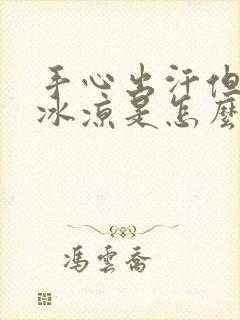 手心出汗但
冰凉是怎麼
馮雲喬